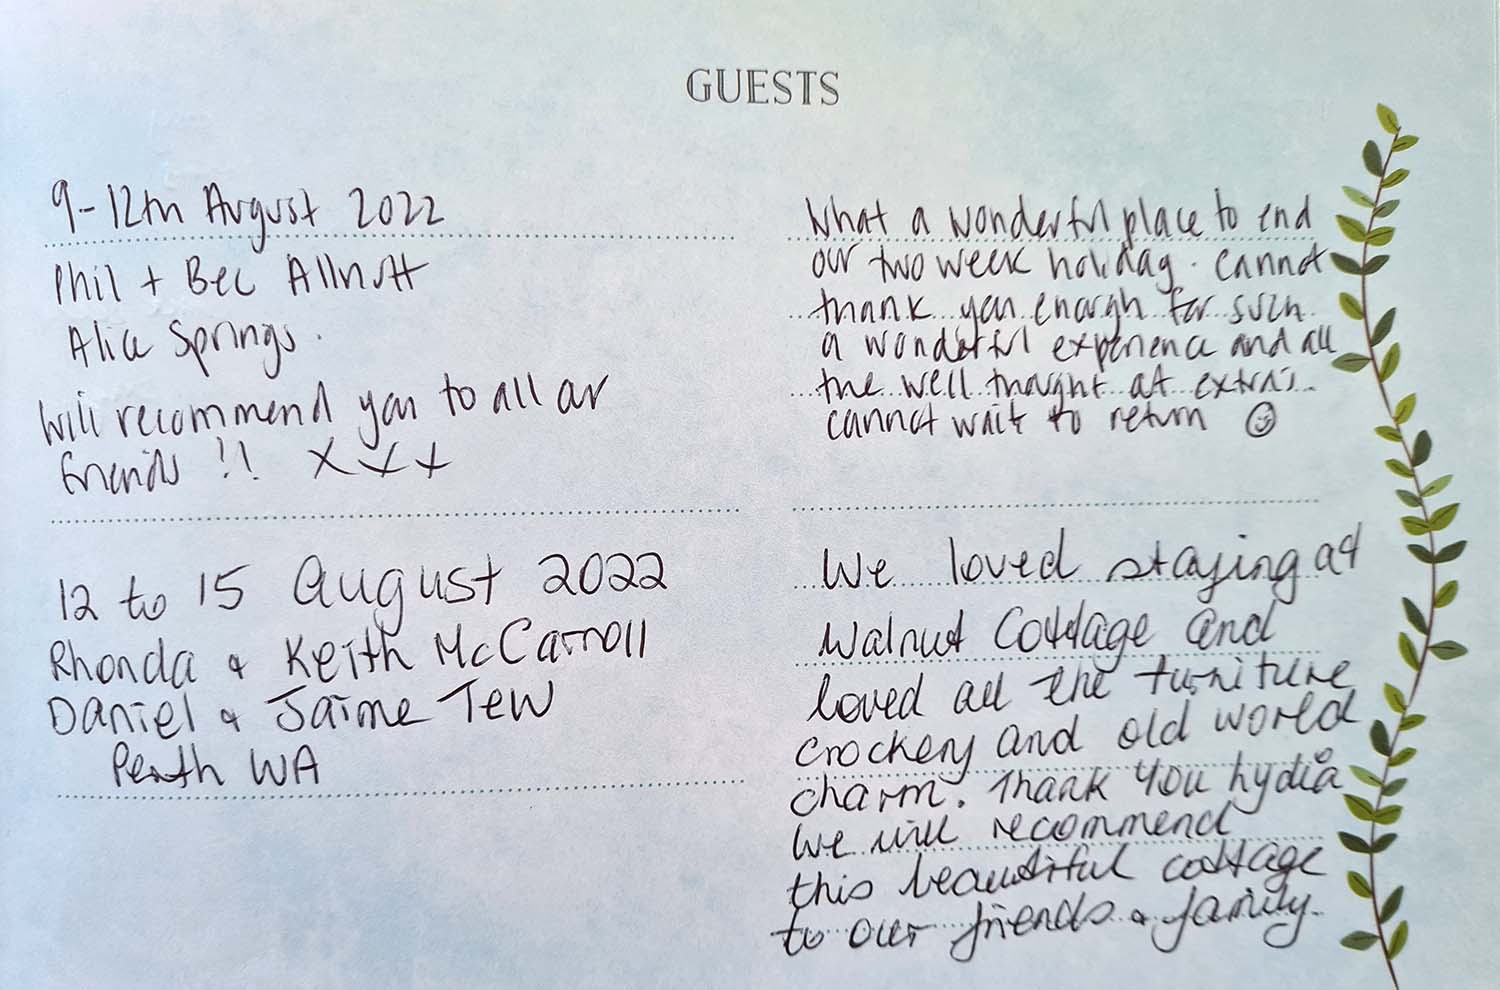 GUESTS
9-12th August 2022
Phil + Bec Allnutt
Alice Springs.
Will recommend you to all our
friends !! x x x
What a wonderful place to end
our two week holiday. Cannot
thank you enough for such
a wonderful experience and all
the well thought out extra's.
cannot wait to return ☺
12 to 15 August 2022
Rhonda & Keith McCarroll
Daniel & Jaime Tew
Perth WA
We loved staying at
Walnut Cottage and
loved all the furniture
crockery and old world
charm. Thank you Lydia
We will recommend
this beautiful cottage
to our friends & family.